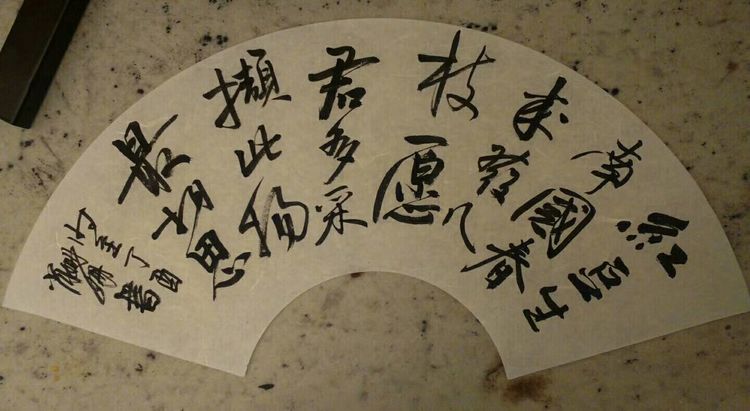 红豆生
南國春
来發几
枝愿
君多采
擷此物
最相思
丁酉
書